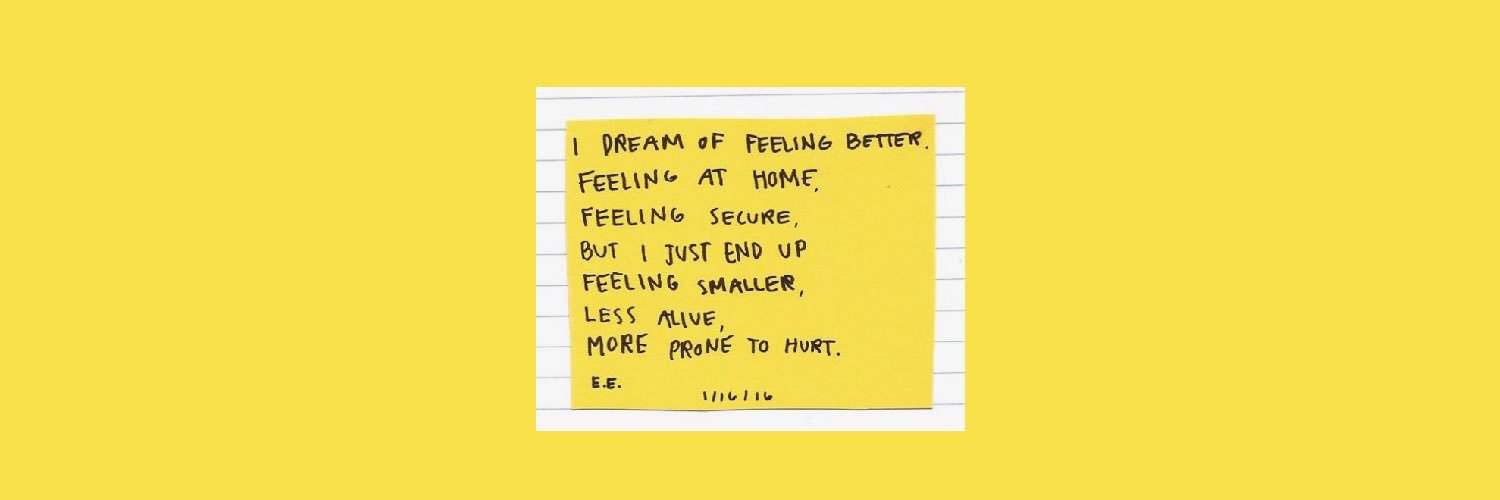 I DREAM OF FEELING BETTER.
FEELING AT HOME,
FEELING SECURE,
BUT I JUST END UP
FEELING SMALLER,
LESS ALIVE,
MORE PRONE TO HURT.
E.E.
1/16/16